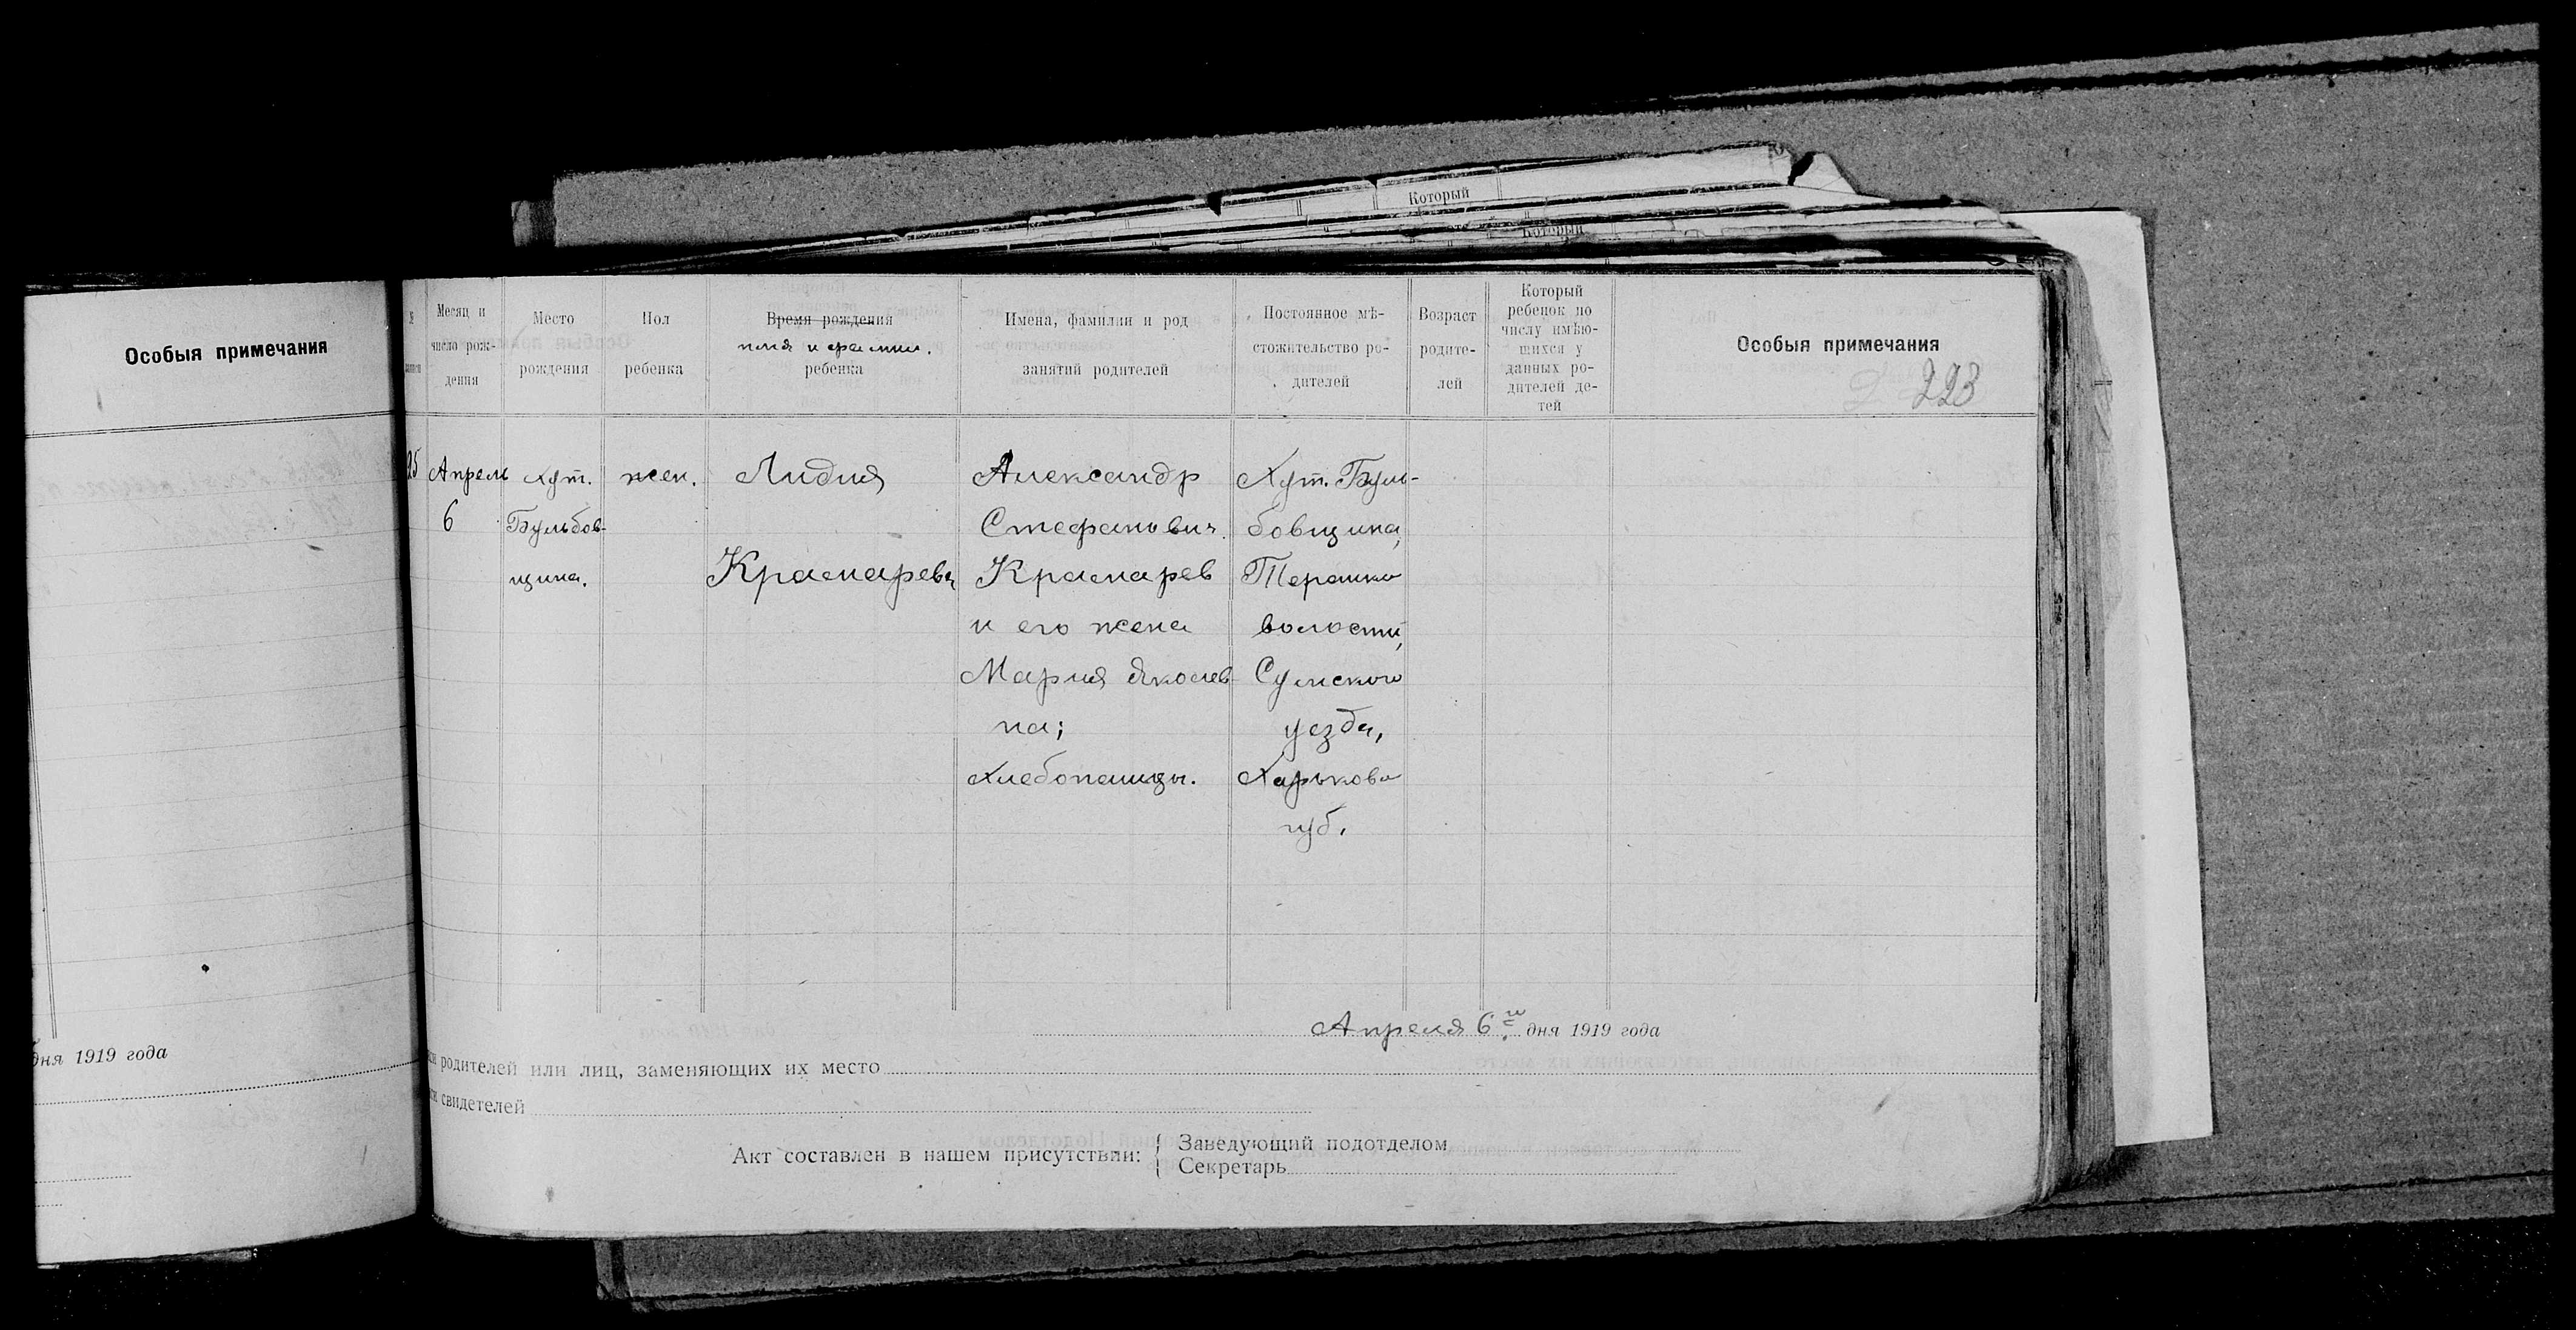 Который
Который
Особыя примечания
дня 1919 года
№
Месяц и
число рож-
дения
Место
рождения
Пол
ребенка
Время рождения
имя и фамил.
ребенка
Имена, фамилии и род
занятий родителей
Постоянное мѣ-
стожительство ро-
дителей
Возраст
родите-
лей
Который
ребенок по
числу имѣю-
щихся у
данных ро-
дителей де-
тей
Особыя примечания
223
25
Апрель
6
хут.
Бульбов-
щина.
жен.
Лидия
Крамарева
Александр
Стефанович
Крамарев
и его жена
Мария Яковлев
на;
хлебопашцы.
Хут. Буль-
бовщина,
Терешко
волости,
Сумского
уезда,
Харьково
губ.
Апреля 6го дня 1919 года
родителей или лиц, заменяющих их место
свидетелей
Акт составлен в нашем присутствии: { Заведующий подотделом
Секретарь